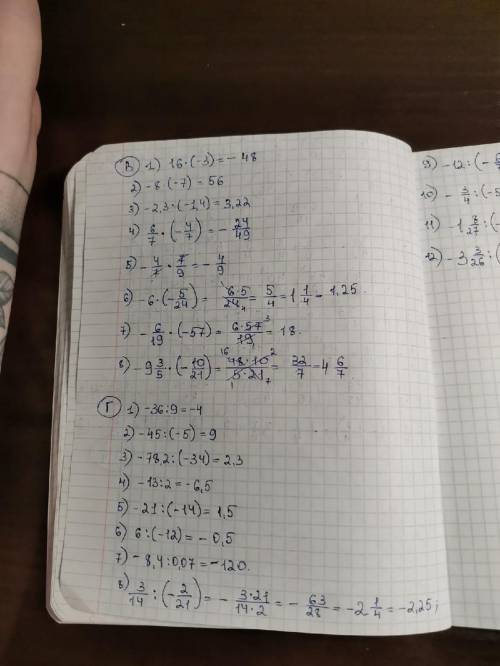 В 1) 16·(-3)=-48
2) -8·(-7)=56
3) -2,3·(-1,4)=3,22
4) 6/7·(-4/7)=-24/49
5) -4/7·7/9=-4/9
6) -6·(-5/24)=6·5/24 4=5/4=1 1/4=1,25.
7) -6/19·(-57)=6·57 3/19 1=18.
8) -9 3/5·(-10/21)=16 48·10 2/1 5·21 7=32/7=4 6/7
Г 1) -36:9=-4
2) -45:(-5)=9
3) -78,2:(-34)=2,3
4) -13:2=-6,5
5) -21:(-14)=1,5
6) 6:(-12)=-0,5
7) -8,4:0,07=-120.
8) 3/14:(-2/21)=-3·21/14·2=-63/28=-2 1/4=-2,25;
9) -12:(-
10) -3/4:(-5
11) -1 8/27:(-
12) -3 3/26:(